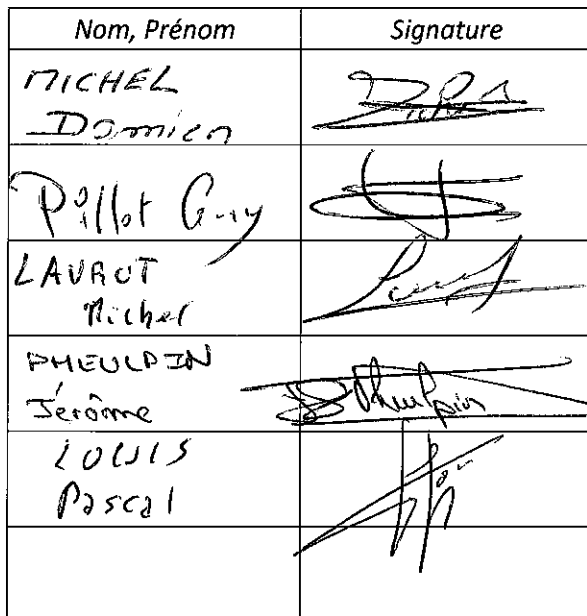 Nom, Prénom Signature
MICHEL
Damien
Pillot Guy
LAUROT
Michel
PHEULPIN
Jérôme Pheulpin
LOUIS
Pascal